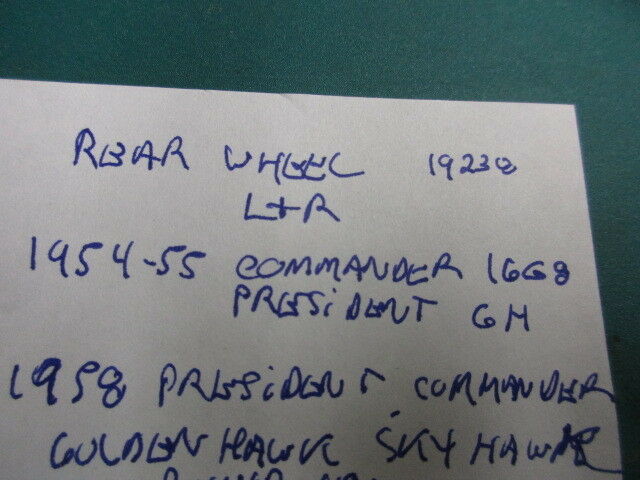 REAR WHEEL 19238
L+R
1954-55 COMMANDER 16G8
PRESIDENT 6H
1958 PRESIDENT COMMANDER
GOLDEN HAWK SKY HAWK